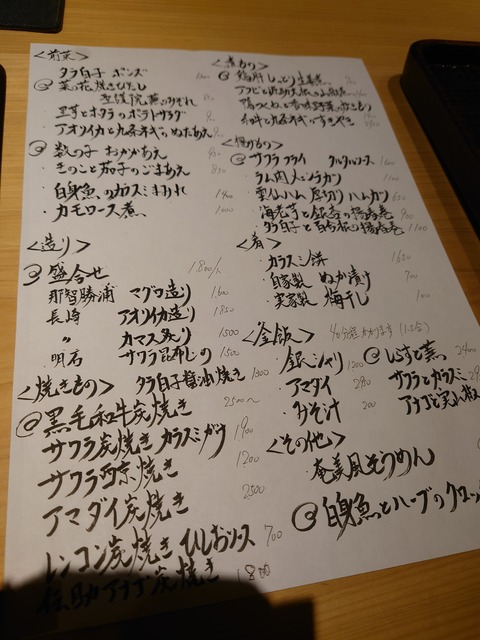 <前菜>
タラ白子 ポンズ
菜の花焼きびたし
聖護院蕪のみぞれ
里芋とオクラのポテトサラダ
アオリイカと九条ネギのぬたあえ
数の子 おかかあえ
きのこと茄子のごまあえ 850
白身魚のカラスミまぶれ 1400
カモロース煮 1000
<造り>
盛合せ 1800/人
那智勝浦 マグロ造り 1600
長崎 アオリイカ造り 1850
〃 カマス炙り 1500
明石 サワラ昆布しめ 1500
<焼きもの> タラ白子醤油焼き 1300
黒毛和牛炭焼き 2500〜
サワラ炭焼き カラスミがけ 1900
サワラ西京焼き 1200
アマダイ炭焼き 2500
レンコン炭焼き ひしおソース 700
伝助アナゴ炭焼き 1800
<煮もの>
鶏肝 しっとり生姜煮
和牛と九条ネギのすきやき
<揚げもの>
サワラフライ タルタルソース 1600
ラム肉メンチカツ
雲仙ハム 厚切り ハムカツ 650
海老芋と銀杏の揚春巻 900
タラ白子と百合根の揚春巻 1100
<肴>
カラスミ餅 1650
自家製 ぬか漬け 700
実家製 梅干し 100
<釜飯> 40分程かかります (1.5合)
銀シャリ 1200
アマダイ 2900
みそ汁 200
しらすと葱 2400
サワラとカラスミ
アナゴと実山椒
<その他>
奄美風そうめん
白身魚とハーブのクロッ